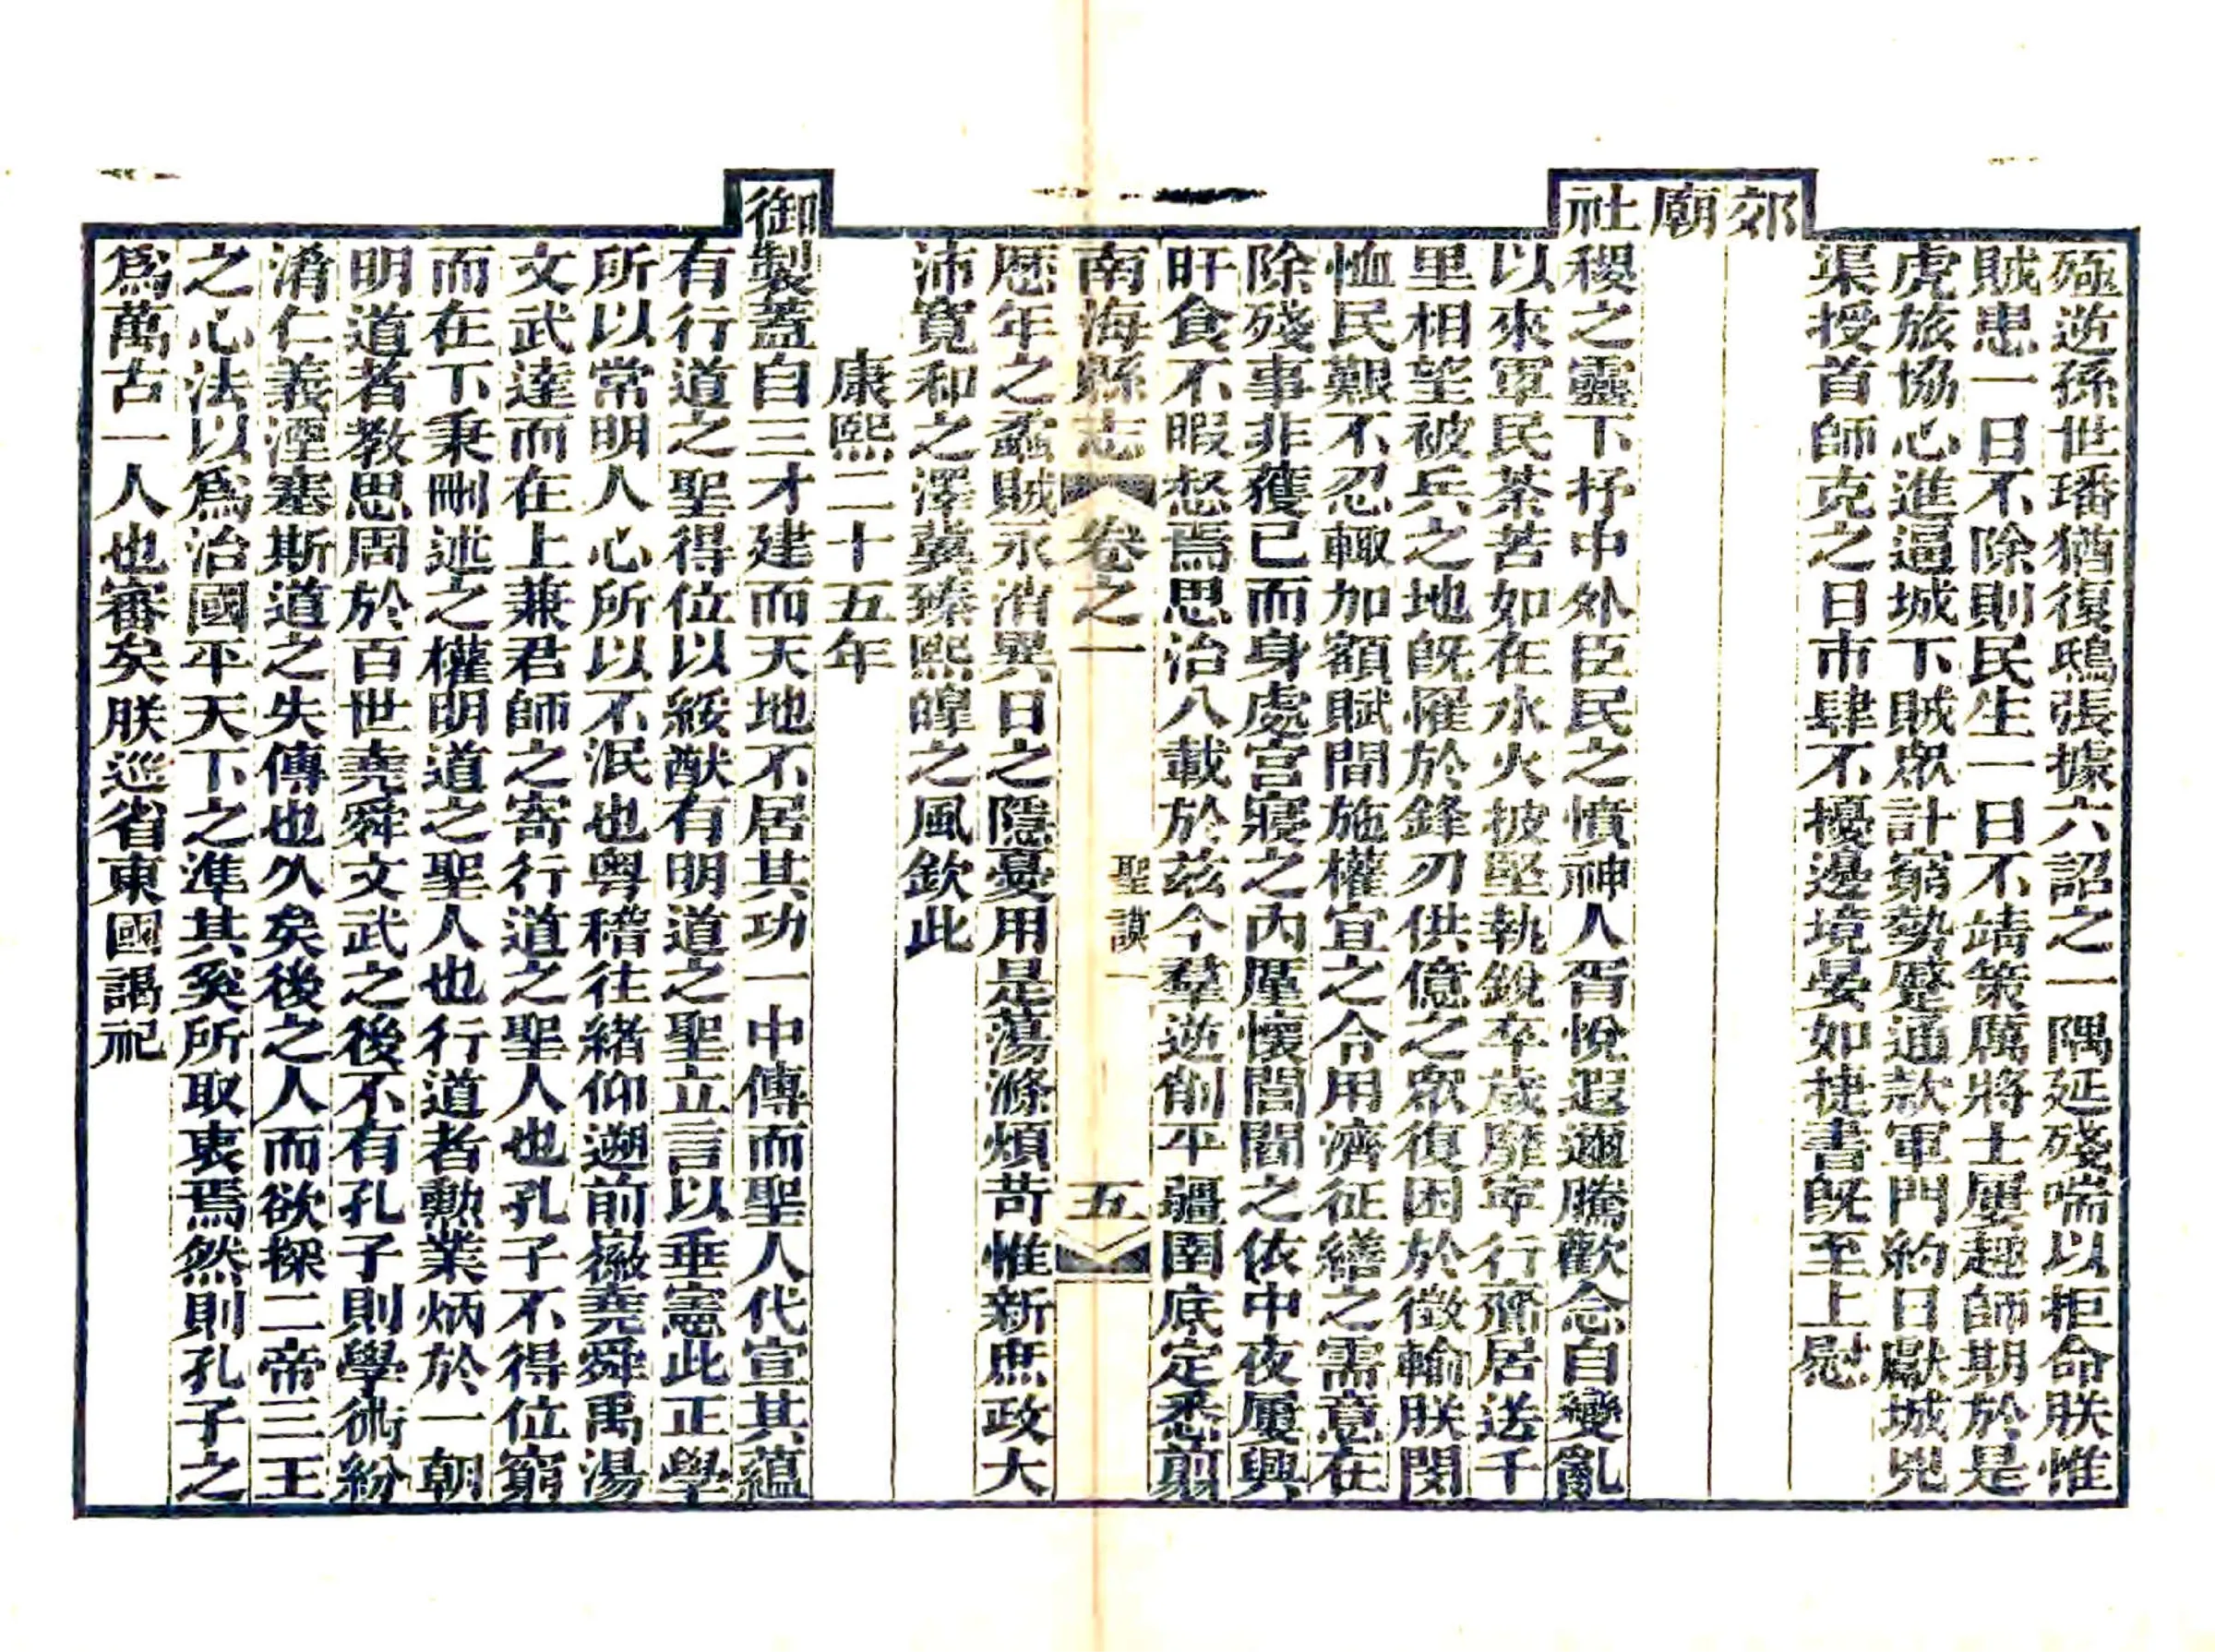 殛逆孫世璠猶復鴟張據六詔之一隅延殘喘以拒命朕惟
賊患一日不除則民生一日不靖策厲將士屢趣師期於是
虎旅協心進逼城下賊眾計窮勢蹙通款軍門約日獻城兇
渠授首師克之日市肆不擾邊境晏如捷書旣至上慰
郊
廟
社稷之靈下抒中外臣民之憤神人胥悅遐邇騰歡念自變亂
以來軍民荼苦如在水火披堅執銳卒歲靡寧行齎居送千
里相望被兵之地旣罹於鋒刃供億之眾復困於徵輸朕閔
恤民艱不忍輙加額賦間施權宜之令用濟征繕之需意在
除殘事非獲已而身處宮寢之內厪懷閭閻之依中夜屢興
旰食不暇惄焉思治八載於茲今羣逆削平疆圉底定悉剪
南海縣志 卷之一 聖謨一 五
歷年之蟊賊永消異日之隱憂用是蕩滌煩苛惟新庶政大
沛寬和之澤冀臻熙皥之風欽此
康熙二十五年
御製蓋自三才建而天地不居其功一中傳而聖人代宣其蘊
有行道之聖得位以綏猷有明道之聖立言以垂憲此正學
所以常明人心所以不泯也粤稽往緒仰遡前徽堯舜禹湯
文武達而在上兼君師之寄行道之聖人也孔子不得位窮
而在下秉刪述之權明道之聖人也行道者勲業炳於一朝
明道者教思周於百世堯舜文武之後不有孔子則學術紛
淆仁義湮塞斯道之失傳也久矣後之人而欲探二帝三王
之心法以爲治國平天下之準其奚所取衷焉然則孔子之
爲萬古一人也審矣朕巡省東國謁祀